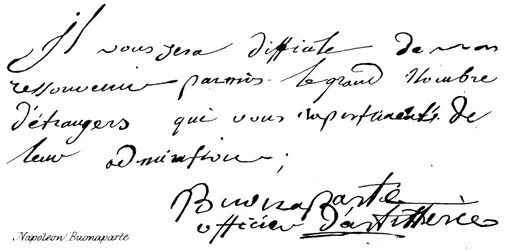 Il vous sera difficile de vous
ressouvenir parmis le grand Nombre
d'étrangers qui vous importunents de
leur admiration;
Buonaparte
officier d'artillerie
Napoleon Buonaparte